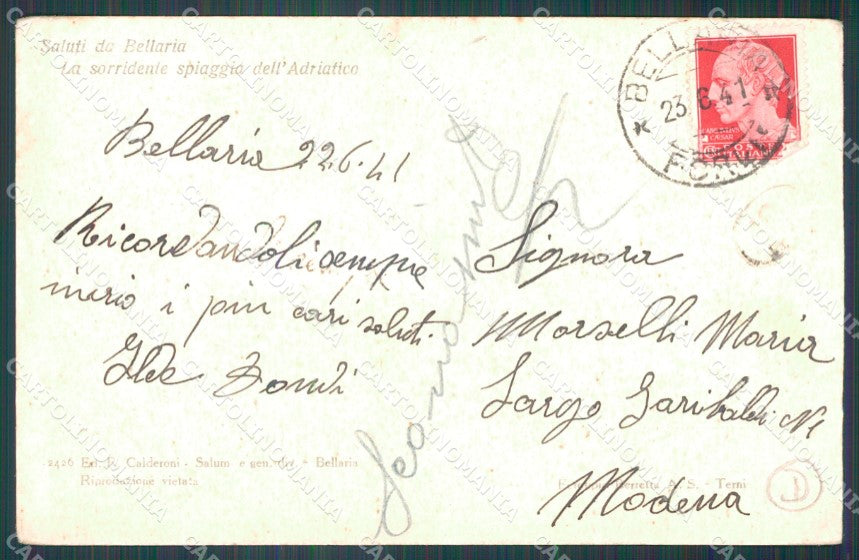 Saluti da Bellaria
La sorridente spiaggia dell'Adriatico
Bellaria 22.6.41
Ricordandoli sempre
invio i più cari saluti.
Ilde
Signora
Morselli Maria
Largo Garibaldi N1
Modena
BELLARIA
23.6.41
FORLI
CAESAR
2426 Ed. P. Calderoni - Salum e gen. div. - Bellaria
Riproduzione vietata
A. S. - Terni
CARTOLINOMANIA